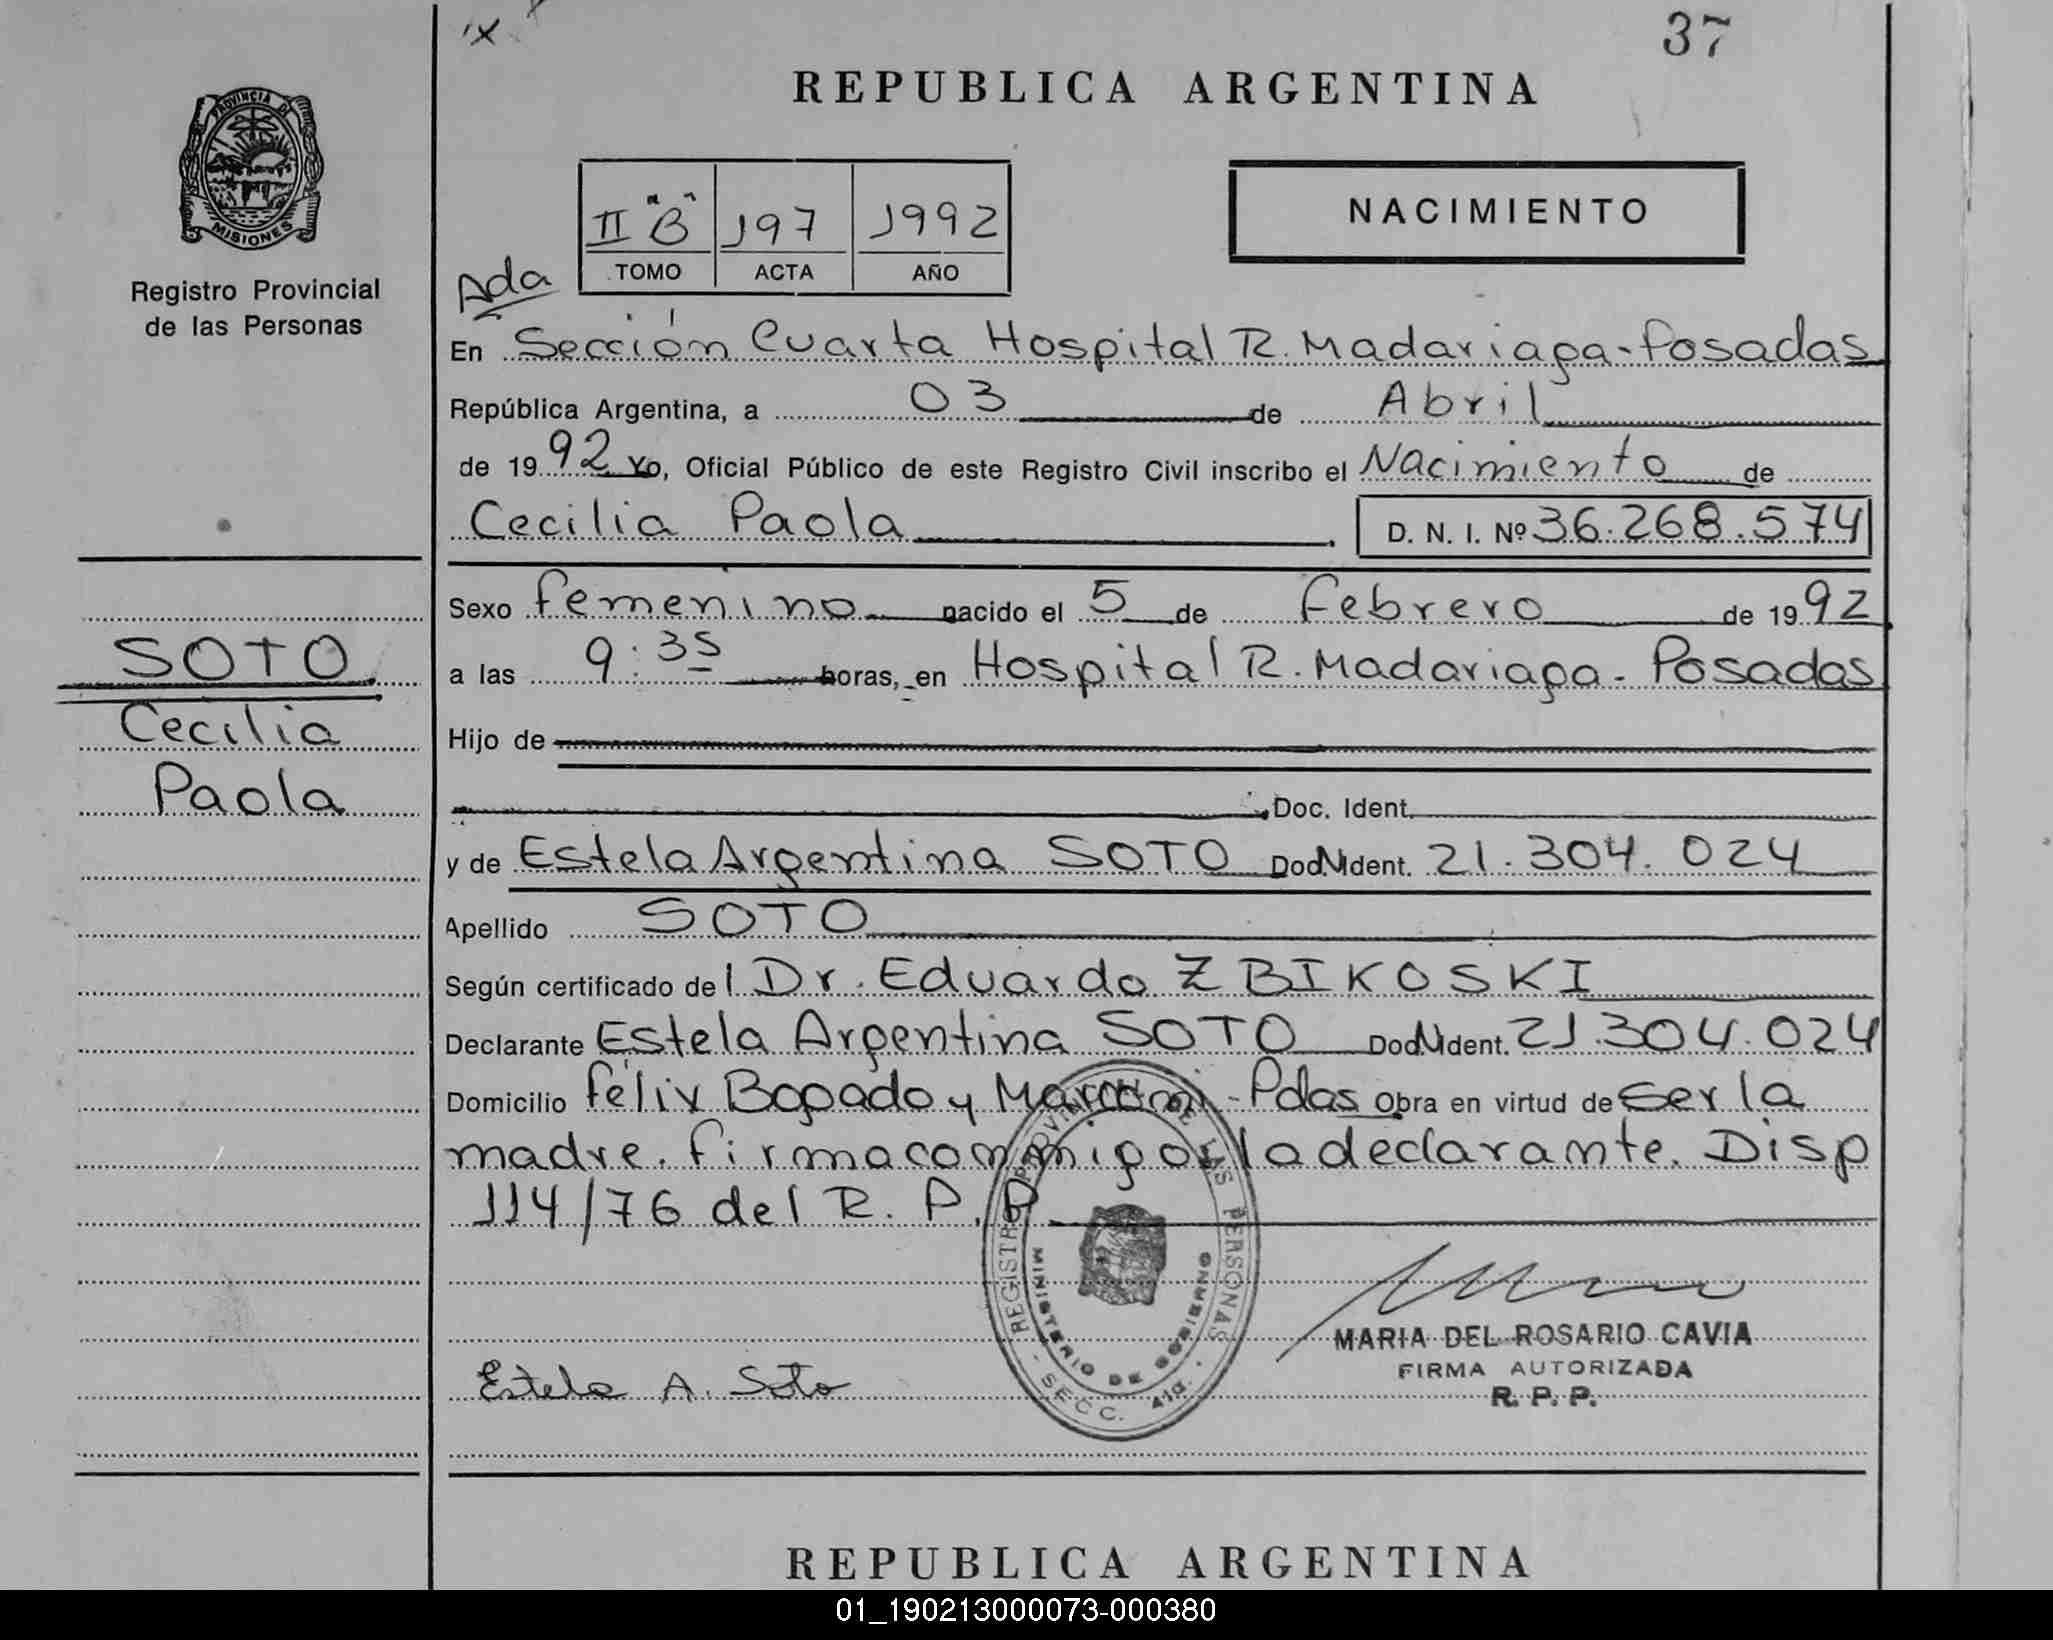 37
REPUBLICA ARGENTINA
PROVINCIA DE
MISIONES
Registro Provincial
de las Personas
II "B" 197 1992
TOMO ACTA AÑO
NACIMIENTO
Ada
En Sección Cuarta Hospital R. Madariaga-Posadas
República Argentina, a 03 de Abril
de 1992 Yo, Oficial Público de este Registro Civil inscribo el Nacimiento de
Cecilia Paola D. N. I. Nº 36.268.574
Sexo femenino nacido el 5 de febrero de 1992
a las 9:35 horas, en Hospital R. Madariaga - Posadas
Hijo de
Doc. Ident.
y de Estela Argentina SOTO Doc. Ident. 21.304.024
Apellido SOTO
Según certificado del Dr. Eduardo ZBIKOSKI
Declarante Estela Argentina SOTO Doc. Ident. 21.304.024
Domicilio félix Bogado y Marconi - Pdas Obra en virtud de ser la
madre. firma conmigo la declarante. Disp
114/76 del R. P. P.
SOTO
Cecilia
Paola
REGISTRO PROVINCIAL DE LAS PERSONAS
MINISTERIO DE GOBIERNO
SECC. 4ta.
MARIA DEL ROSARIO CAVIA
FIRMA AUTORIZADA
R. P. P.
Estela A. Soto
REPUBLICA ARGENTINA
01_190213000073-000380